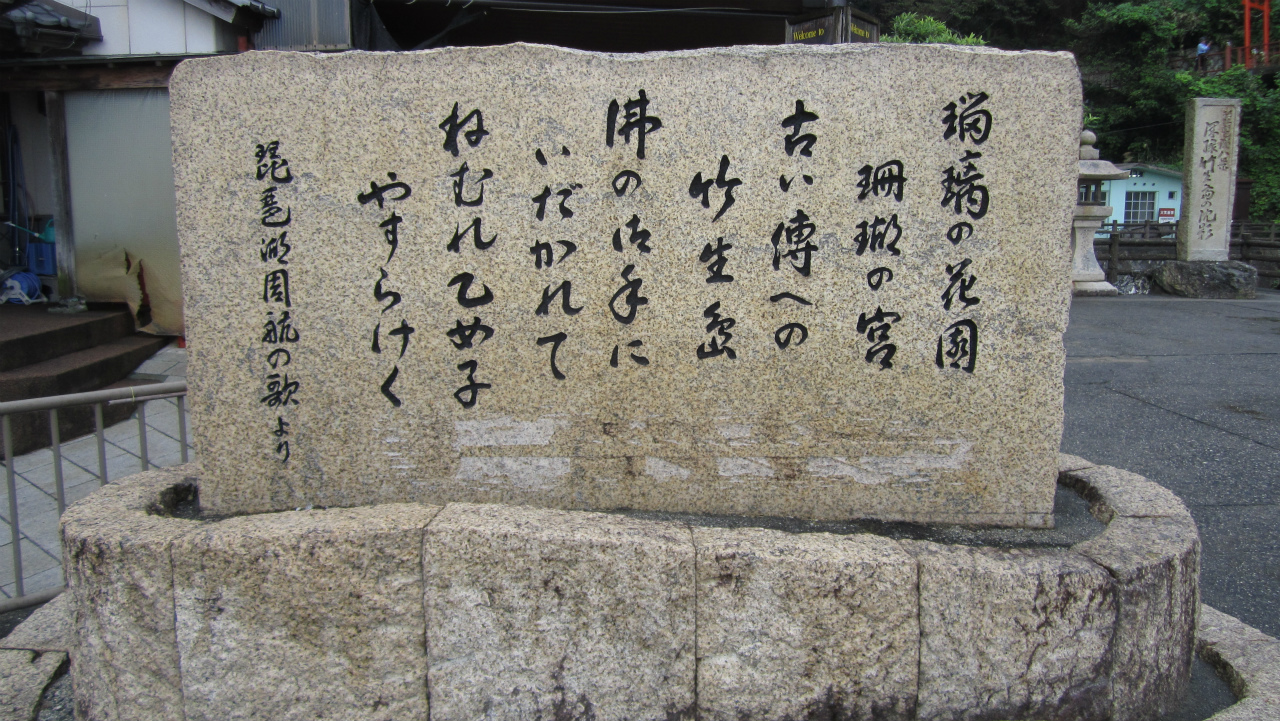 瑠璃の花園
珊瑚の宮
古い傳への
竹生島
佛の御手に
いだかれて
ねむれ乙女子
やすらけく
琵琶湖周航の歌より
Welcome to
Welcome to
深緑竹生島の沈影